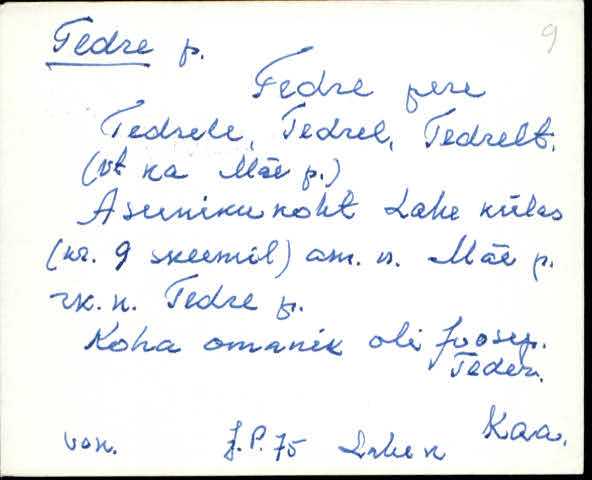 9
Tedre p.
Tedre pere
Tedrele, Tedrel, Tedrelt.
(vt ka Mäe p.)
Asunikukoht Lahe külas
(nr. 9 skeemil) am. n. Mäe p.
rk. n. Tedre p.
Koha omanik oli Joosep.
Teder.
Kaa.
J.P. 75 Lahe k